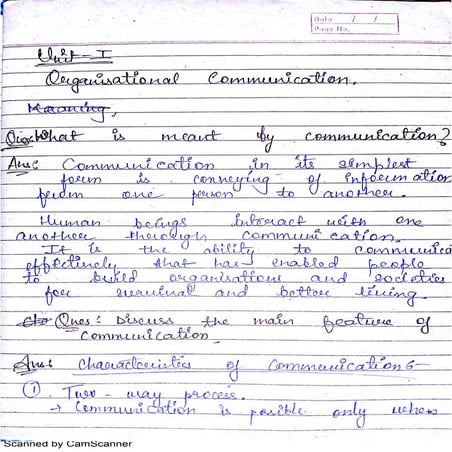 Date / /
Page No.
Unit - I
Organisational Communication.
Meaning,
Ques: What is meant by communication?
Ans: Communication in its simplest
form is conveying of information
from one person to another.
Human beings interact with one
another through communication.
It is the ability to communica
effectively that has enabled people
to build organisations and societies
for survival and better living.
Ques: Discuss the main feature of
Communication
Ans: Characteristics of Communication :-
① Two-way process.
→ Communication is posible only when
Scanned by CamScanner